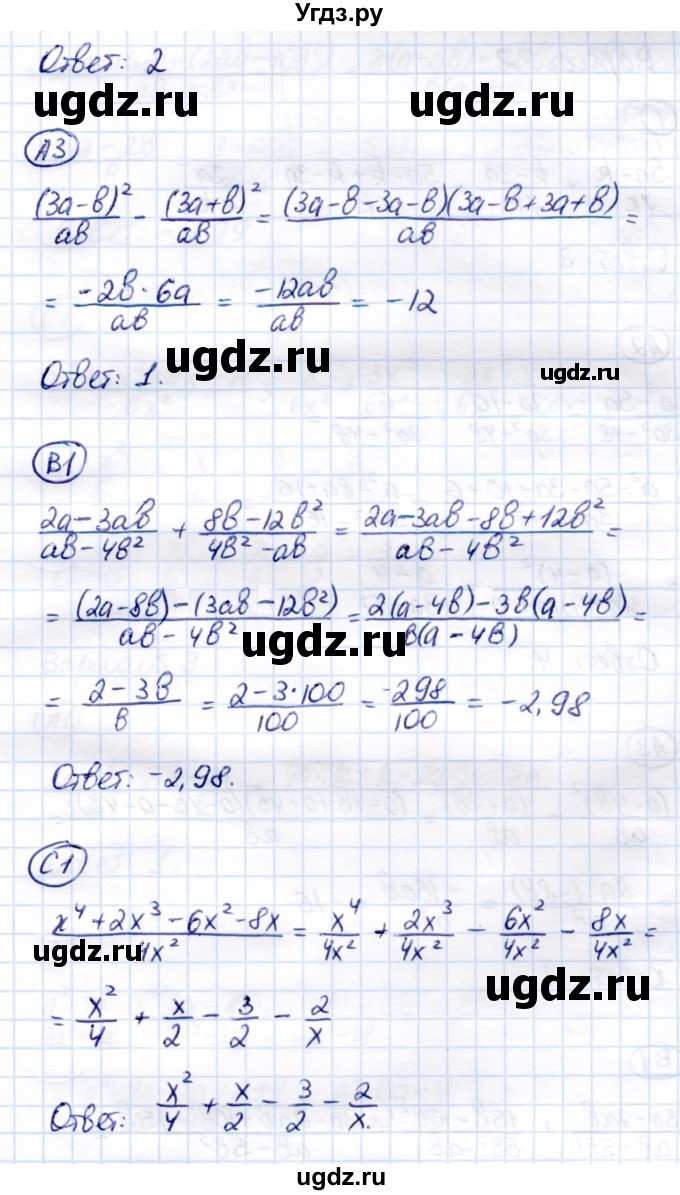 Угдз.ру
Ответ: 2
ugdz.ru ugdz.ru
А3
(3a-b)²/ab - (3a+b)²/ab = (3a-b-3a-b)(3a-b+3a+b)/ab =
= -2b·6a/ab = -12ab/ab = -12
ugdz.ru
Ответ: 1.
ugdz.ru
В1
2a-3ab/ab-4b² + 8b-12b²/4b²-ab = 2a-3ab-8b+12b²/ab-4b² =
= (2a-8b)-(3ab-12b²)/ab-4b² = 2(a-4b)-3b(a-4b)/b(a-4b) =
ugdz.ru
= 2-3b/b = 2-3·100/100 = -298/100 = -2,98
Ответ: -2,98.
С1
x⁴+2x³-6x²-8x/4x² = x⁴/4x² + 2x³/4x² - 6x²/4x² - 8x/4x² =
ugdz.ru
ugdz.ru
= x²/4 + x/2 - 3/2 - 2/x
Ответ: x²/4 + x/2 - 3/2 - 2/x.
ugdz.ru